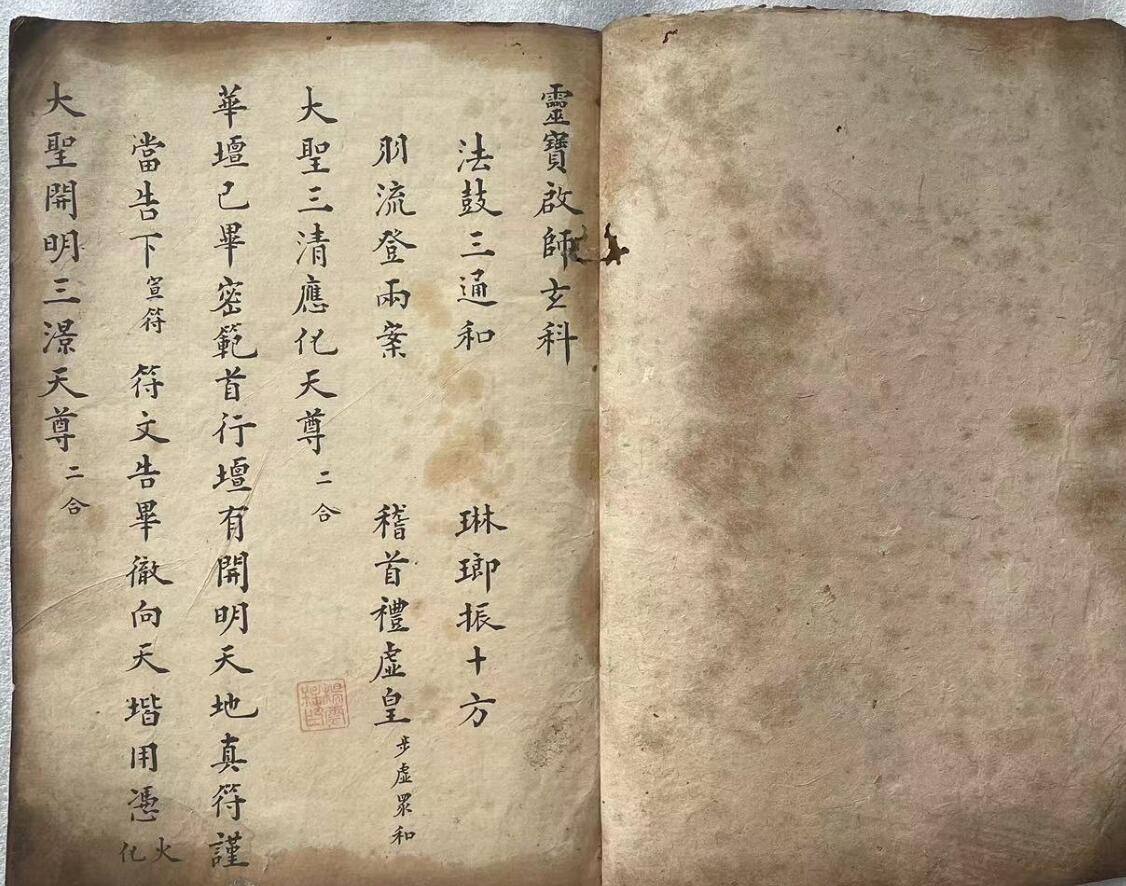 靈寶啟師玄科
法鼓三通和 琳瑯振十方
羽流登兩案 稽首禮虛皇 步虛眾和
大聖三清應化天尊 二合
華壇已畢密範首行壇有開明天地真符謹
當告下 宣符 符文告畢徹向天堦用憑 火化
大聖開明三澋天尊 二合